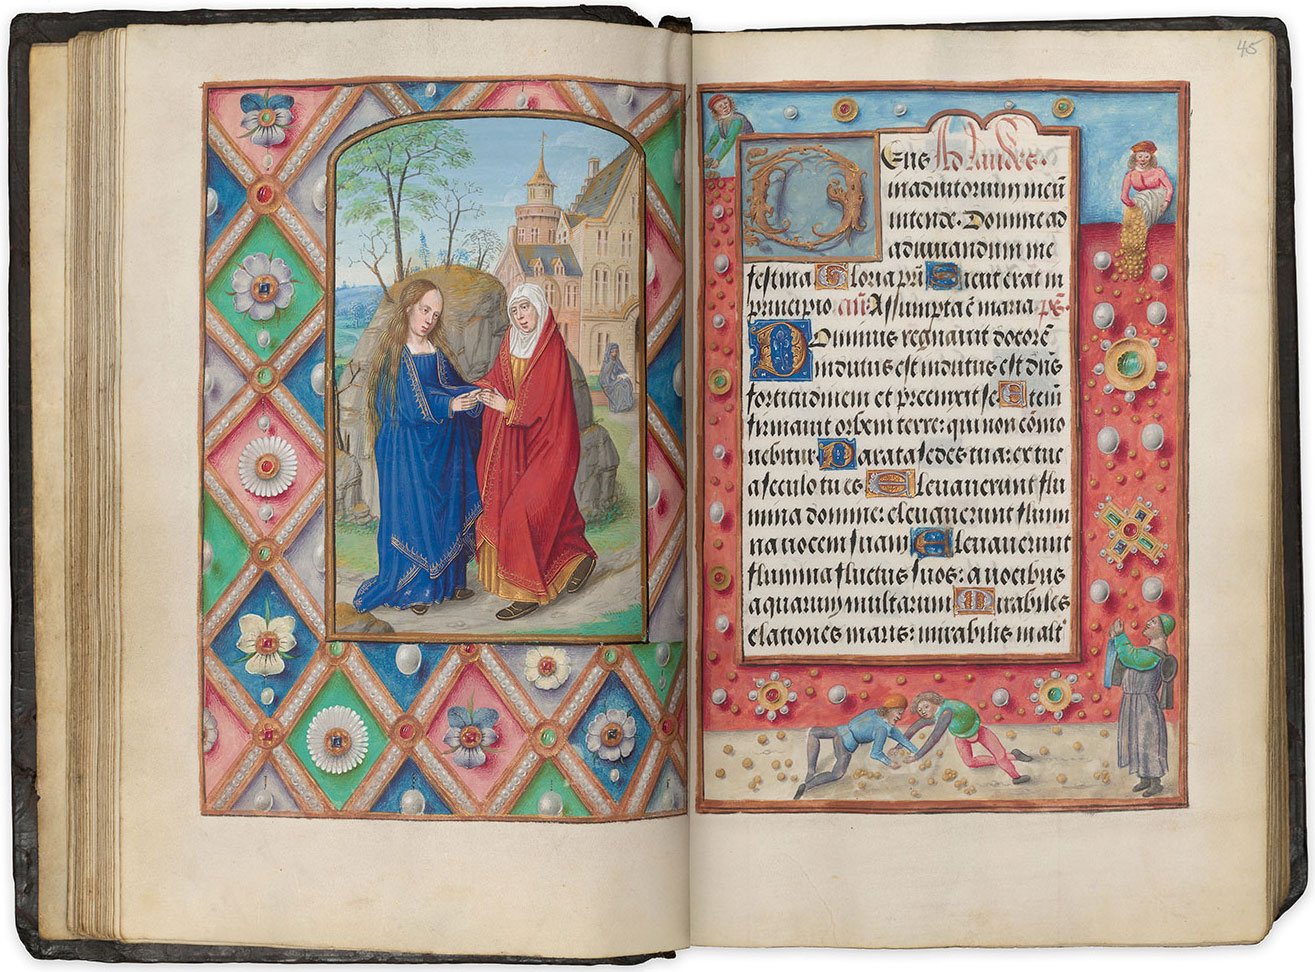 45
Deus Ad laudes.
in adiutorium meū
intende. Domine ad
adiuuandum me
festina Gloria pr̄i Sicut erat in
principio añ Assumpta ē maria ps.
Dominus regnauit decorē
indutus est indutus est dn̄s
fortitudinem et precinxit se Etem̄
firmauit orbem terre: qui non cōmo
uebitur Parata sedes tua ex tūc
a seculo tu es Eleuauerunt flu
mina domine: eleuauerunt flumi
na uocem suam Eleuauerunt
flumina fluctus suos: a uocibus
aquarum multarum Mirabiles
elationes maris: mirabilis in alt'